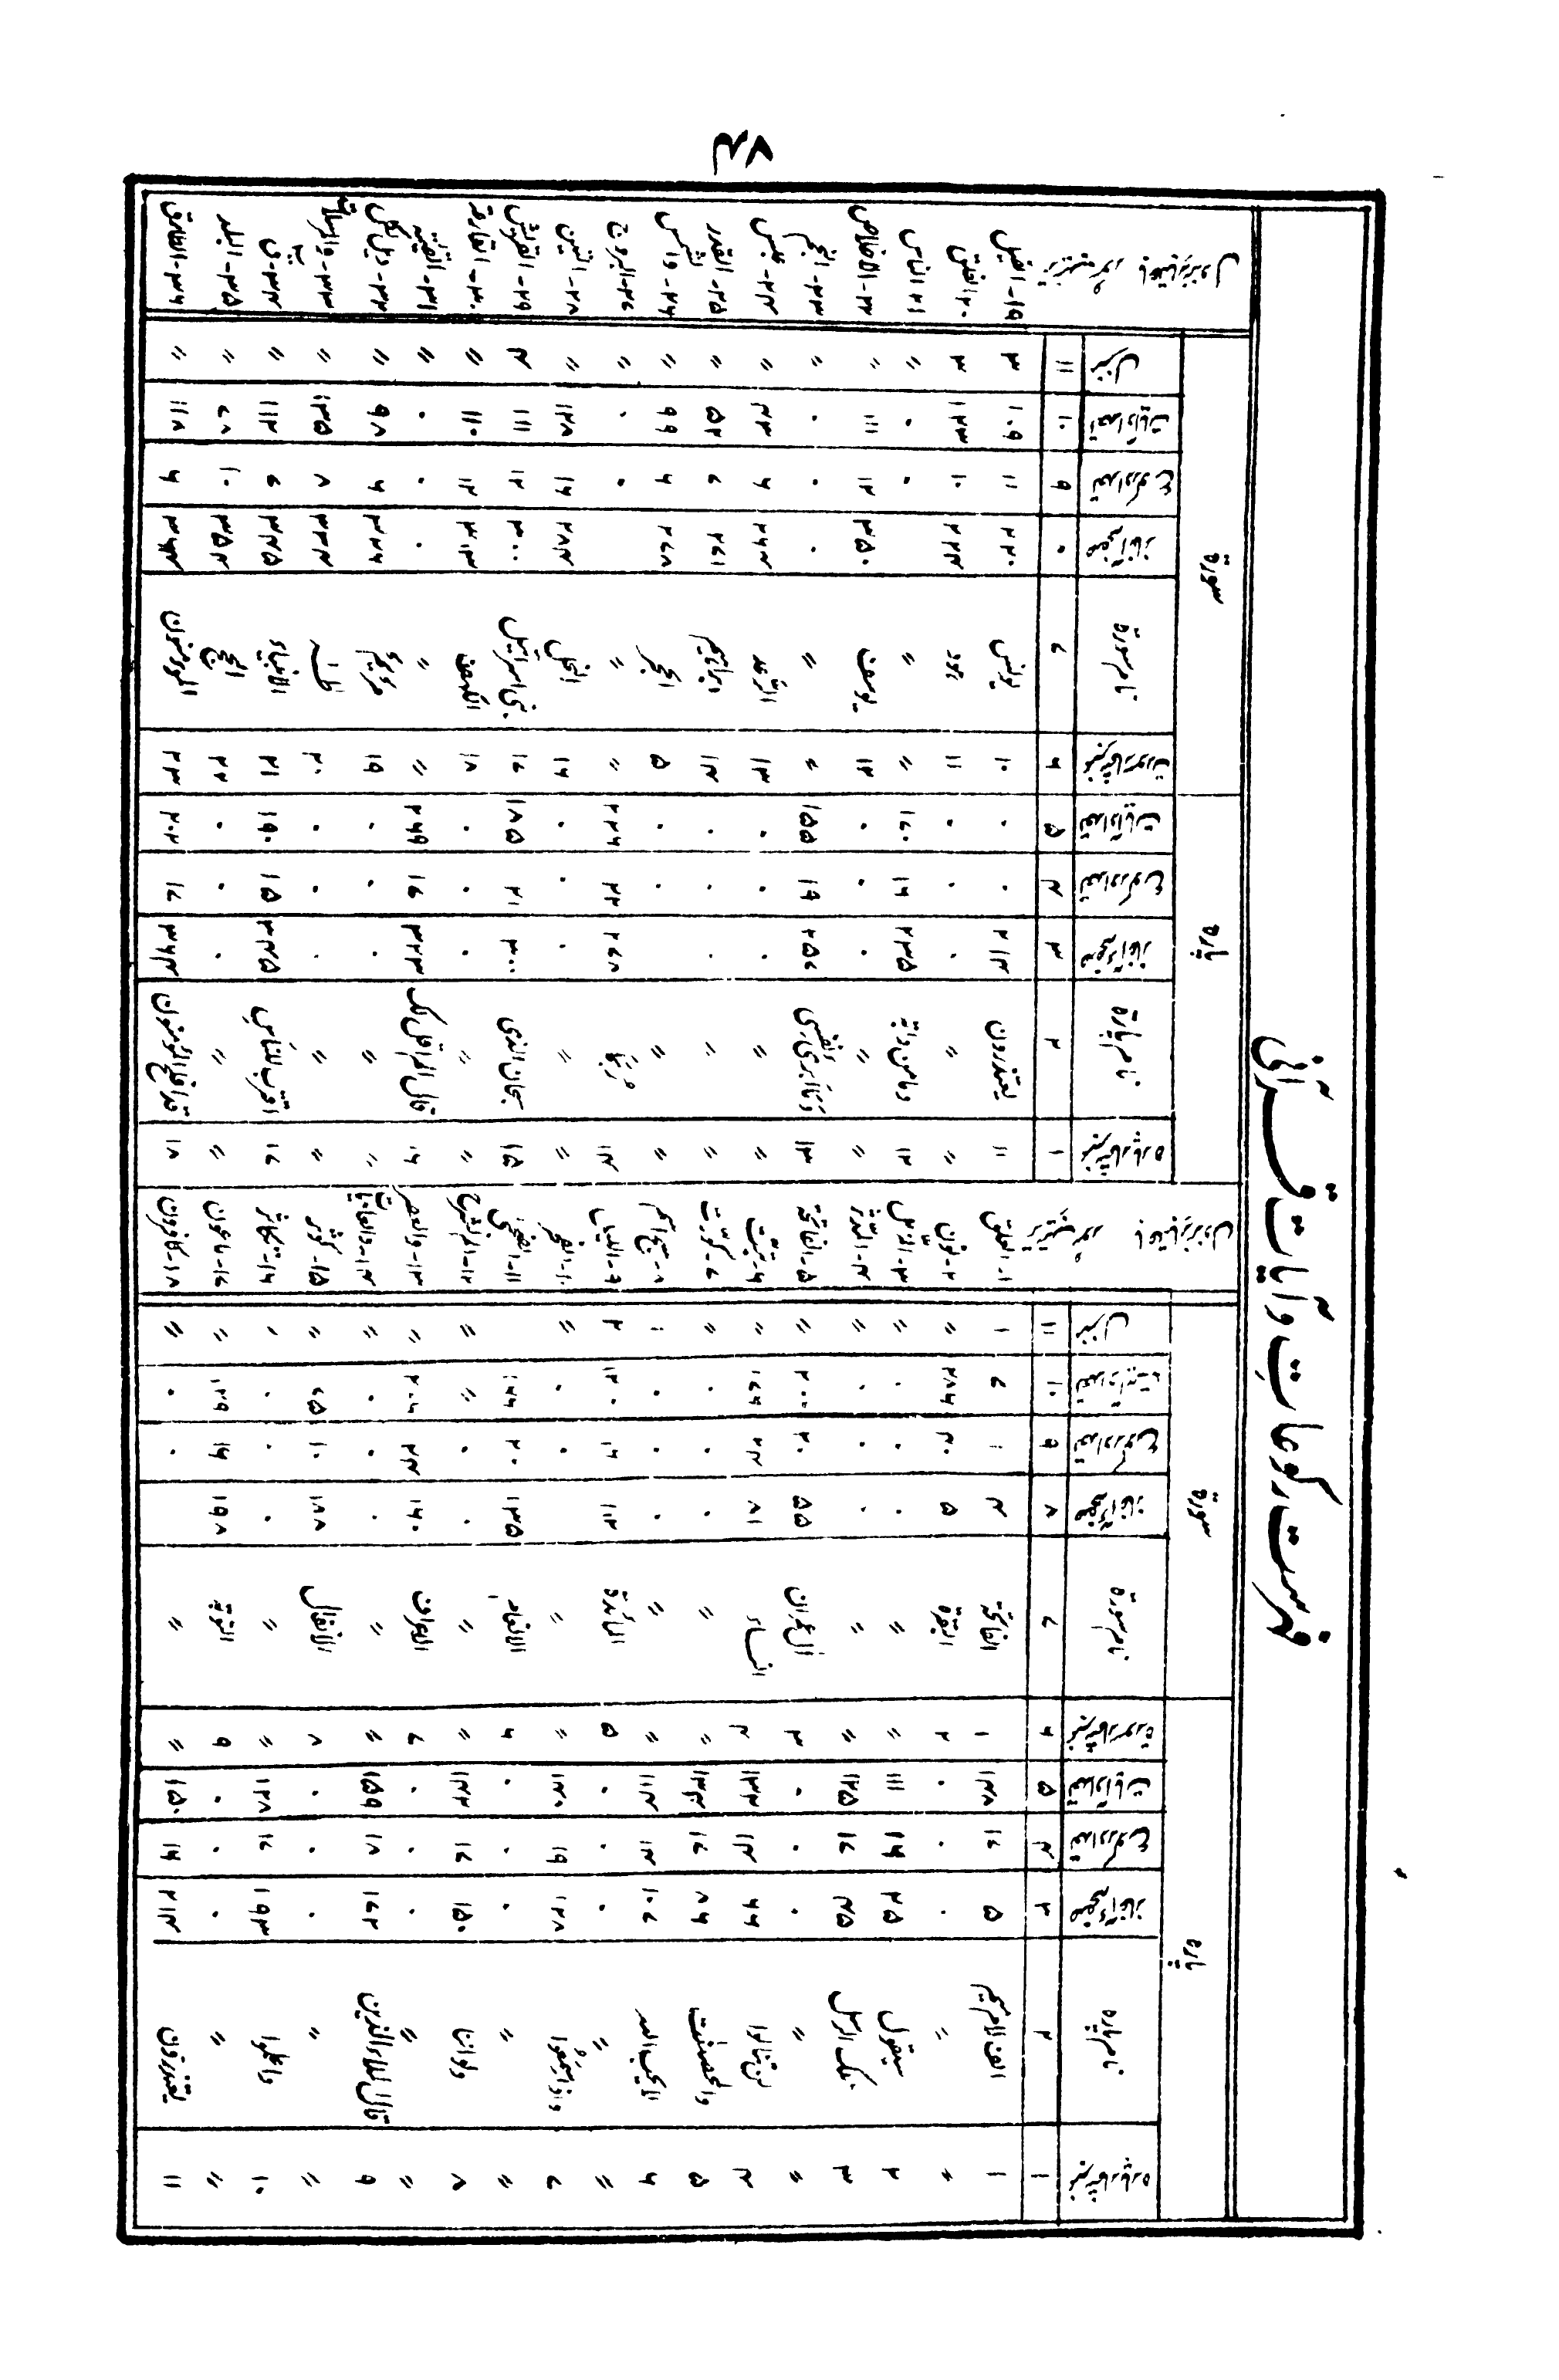 ٤٨
فہرست رکوعات و آیات قرآنی
پارہ | سورۃ | ترتیب سور باعتبار نزول
نمبر شمار پارہ | نام پارہ | صفحہ آغاز | تعداد رکوع | تعداد آیات | نمبر شمار سورۃ | نام سورۃ | صفحہ آغاز | تعداد رکوع | تعداد آیات | منزل
۱ | ۲ | ۳ | ۴ | ۵ | ۶ | ۷ | ۸ | ۹ | ۱۰ | ۱۱
۱ | الف لام میم | ۵ | ۱۷ | ۱۴۸ | ۱ | الفاتحۃ | ۴ | ۱ | ۷ | ۱ | ۱-العلق
〃 | 〃 | ۰ | ۰ | ۰ | ۲ | البقرۃ | ۵ | ۴۰ | ۲۸۶ | 〃 | ۲-نون
۲ | سیقول | ۲۵ | ۱۶ | ۱۱۱ | 〃 | 〃 | ۰ | ۰ | ۰ | 〃 | ۳-المزمل
۳ | تلک الرسل | ۴۵ | ۱۷ | ۱۲۵ | 〃 | 〃 | ۰ | ۰ | ۰ | 〃 | ۴-المدثر
〃 | 〃 | ۰ | ۰ | ۰ | ۳ | آل عمران | ۵۵ | ۲۰ | ۲۰۰ | 〃 | ۵-الفاتحۃ
۴ | لن تنالوا | ۶۶ | ۱۴ | ۱۳۲ | ۴ | النساء | ۸۱ | ۲۴ | ۱۷۶ | 〃 | ۶-تبت
۵ | والمحصنٰت | ۸۶ | ۱۷ | ۱۲۴ | 〃 | 〃 | ۰ | ۰ | ۰ | 〃 | ۷-کورت
۶ | لا یحب اللہ | ۱۰۷ | ۱۴ | ۱۱۴ | 〃 | 〃 | ۰ | ۰ | ۰ | ۱ | ۸-سبح اسم
〃 | 〃 | ۰ | ۰ | ۰ | ۵ | المائدۃ | ۱۱۲ | ۱۶ | ۱۲۰ | ۲ | ۹-اللیل
۷ | واذا سمعوا | ۱۲۸ | ۱۹ | ۱۴۰ | 〃 | 〃 | ۰ | ۰ | ۰ | 〃 | ۱۰-الفجر
〃 | 〃 | ۰ | ۰ | ۰ | ۶ | الانعام | ۱۳۵ | ۲۰ | ۱۶۶ | ۱۱-الضحی
۸ | ولواننا | ۱۵۰ | ۱۷ | ۱۴۲ | 〃 | 〃 | ۰ | ۰ | 〃 | 〃 | ۱۲-الم نشرح
〃 | 〃 | ۰ | ۰ | ۰ | ۷ | الاعراف | ۱۶۰ | ۲۴ | ۲۰۶ | 〃 | ۱۳-والعصر
۹ | قال الملاء الذین | ۱۷۲ | ۱۸ | ۱۵۹ | 〃 | 〃 | ۰ | ۰ | ۰ | 〃 | ۱۴-والعادیات
〃 | 〃 | ۰ | ۰ | ۰ | ۸ | الانفال | ۱۸۸ | ۱۰ | ۷۵ | 〃 | ۱۵-کوثر
۱۰ | واعلموا | ۱۹۳ | ۱۷ | ۱۲۸ | 〃 | 〃 | ۰ | ۰ | ۰ | 〃 | ۱۶-تکاثر
〃 | 〃 | ۰ | ۰ | ۰ | ۹ | التوبۃ | ۱۹۸ | ۱۶ | ۱۲۹ | 〃 | ۱۷-ماعون
۱۱ | یعتذرون | ۲۱۴ | ۱۶ | ۱۵۰ | 〃 | 〃 | ۰ | ۰ | 〃 | ۱۸-کافرون
پارۃ | سورۃ | ترتیب سور باعتبار نزول
نمبر شمار پارہ | نام پارۃ | صفحہ آغاز | تعداد رکوع | تعداد آیات | نمبر شمار سورت | نام سورۃ | صفحہ آغاز | تعداد رکوع | تعداد آیات | منزل
۱ | ۲ | ۳ | ۴ | ۵ | ۶ | ۷ | ۰ | ۹ | ۱۰ | ۱۱
۱۱ | یعتذرون | ۲۱۴ | ۰ | ۰ | ۱۰ | یونس | ۲۲۰ | ۱۱ | ۱۰۹ | ۳ | ۱۹-الفیل
〃 | 〃 | ۰ | ۰ | ۰ | ۱۱ | ہود | ۲۳۴ | ۱۰ | ۱۲۳ | ۳ | ۲۰-الفلق
۱۲ | ومامن دابۃ | ۲۳۵ | ۱۶ | ۱۷۰ | 〃 | 〃 | ۰ | ۰ | 〃 | ۲۱-الناس
〃 | 〃 | ۰ | ۰ | ۰ | ۱۲ | یوسف | ۲۵۰ | ۱۲ | ۱۱۱ | 〃 | ۲۲-الاخلاص
۱۳ | وما ابری نفسی | ۲۵۷ | ۱۹ | ۱۵۵ | 〃 | 〃 | ۰ | ۰ | ۰ | 〃 | ۲۳-النجم
〃 | 〃 | ۰ | ۰ | ۰ | ۱۳ | الرعد | ۲۶۴ | ۶ | ۴۳ | 〃 | ۲۴-عبس
〃 | 〃 | ۰ | ۰ | ۰ | ۱۴ | ابراہیم | ۲۷۱ | ۷ | ۵۲ | 〃 | ۲۵-القدر
〃 | 〃 | ۰ | ۰ | ۵ | الحجر | ۲۷۸ | ۶ | ۹۹ | 〃 | ۲۶-والشمس
۱۴ | ربما | ۲۷۸ | ۲۲ | ۲۲۶ | 〃 | 〃 | ۰ | ۰ | 〃 | ۲۷-البروج
〃 | 〃 | ۰ | ۰ | ۰ | ۱۶ | النحل | ۲۸۴ | ۱۶ | ۱۲۸ | 〃 | ۲۸-التین
۱۵ | سبحان الذی | ۳۰۰ | ۲۱ | ۱۸۵ | ۱۷ | بنی اسرائیل | ۳۰۰ | ۱۲ | ۱۱۱ | ۴ | ۲۹-القریش
〃 | 〃 | ۰ | ۰ | ۱۸ | الکہف | ۳۱۳ | ۱۲ | ۱۱۰ | 〃 | ۳۰-القارعۃ
۱۶ | قال الم اقل لک | ۳۲۳ | ۱۷ | ۲۶۹ | 〃 | 〃 | ۰ | ۰ | ۰ | 〃 | ۳۱-القیمۃ
〃 | 〃 | ۰ | ۰ | ۰ | ۱۹ | مریم | ۳۲۶ | ۶ | ۹۸ | 〃 | ۳۲-ویل لکل
〃 | 〃 | ۰ | ۰ | ۰ | ۲۰ | طٰہٰ | ۳۳۴ | ۸ | ۱۳۵ | 〃 | ۳۳-والمرسلات
۱۷ | اقترب للناس | ۳۴۵ | ۱۵ | ۱۹۰ | ۲۱ | الانبیاء | ۳۴۵ | ۷ | ۱۱۲ | 〃 | ۳۴-ق
〃 | 〃 | ۰ | ۰ | ۰ | ۲۲ | الحج | ۳۵۴ | ۱۰ | ۷۸ | 〃 | ۳۵-البلد
۱۸ | قد افلح المومنون | ۳۶۴ | ۱۷ | ۲۰۲ | ۲۳ | المومنون | ۳۶۴ | ۶ | ۱۱۸ | 〃 | ۳۶-الطارق